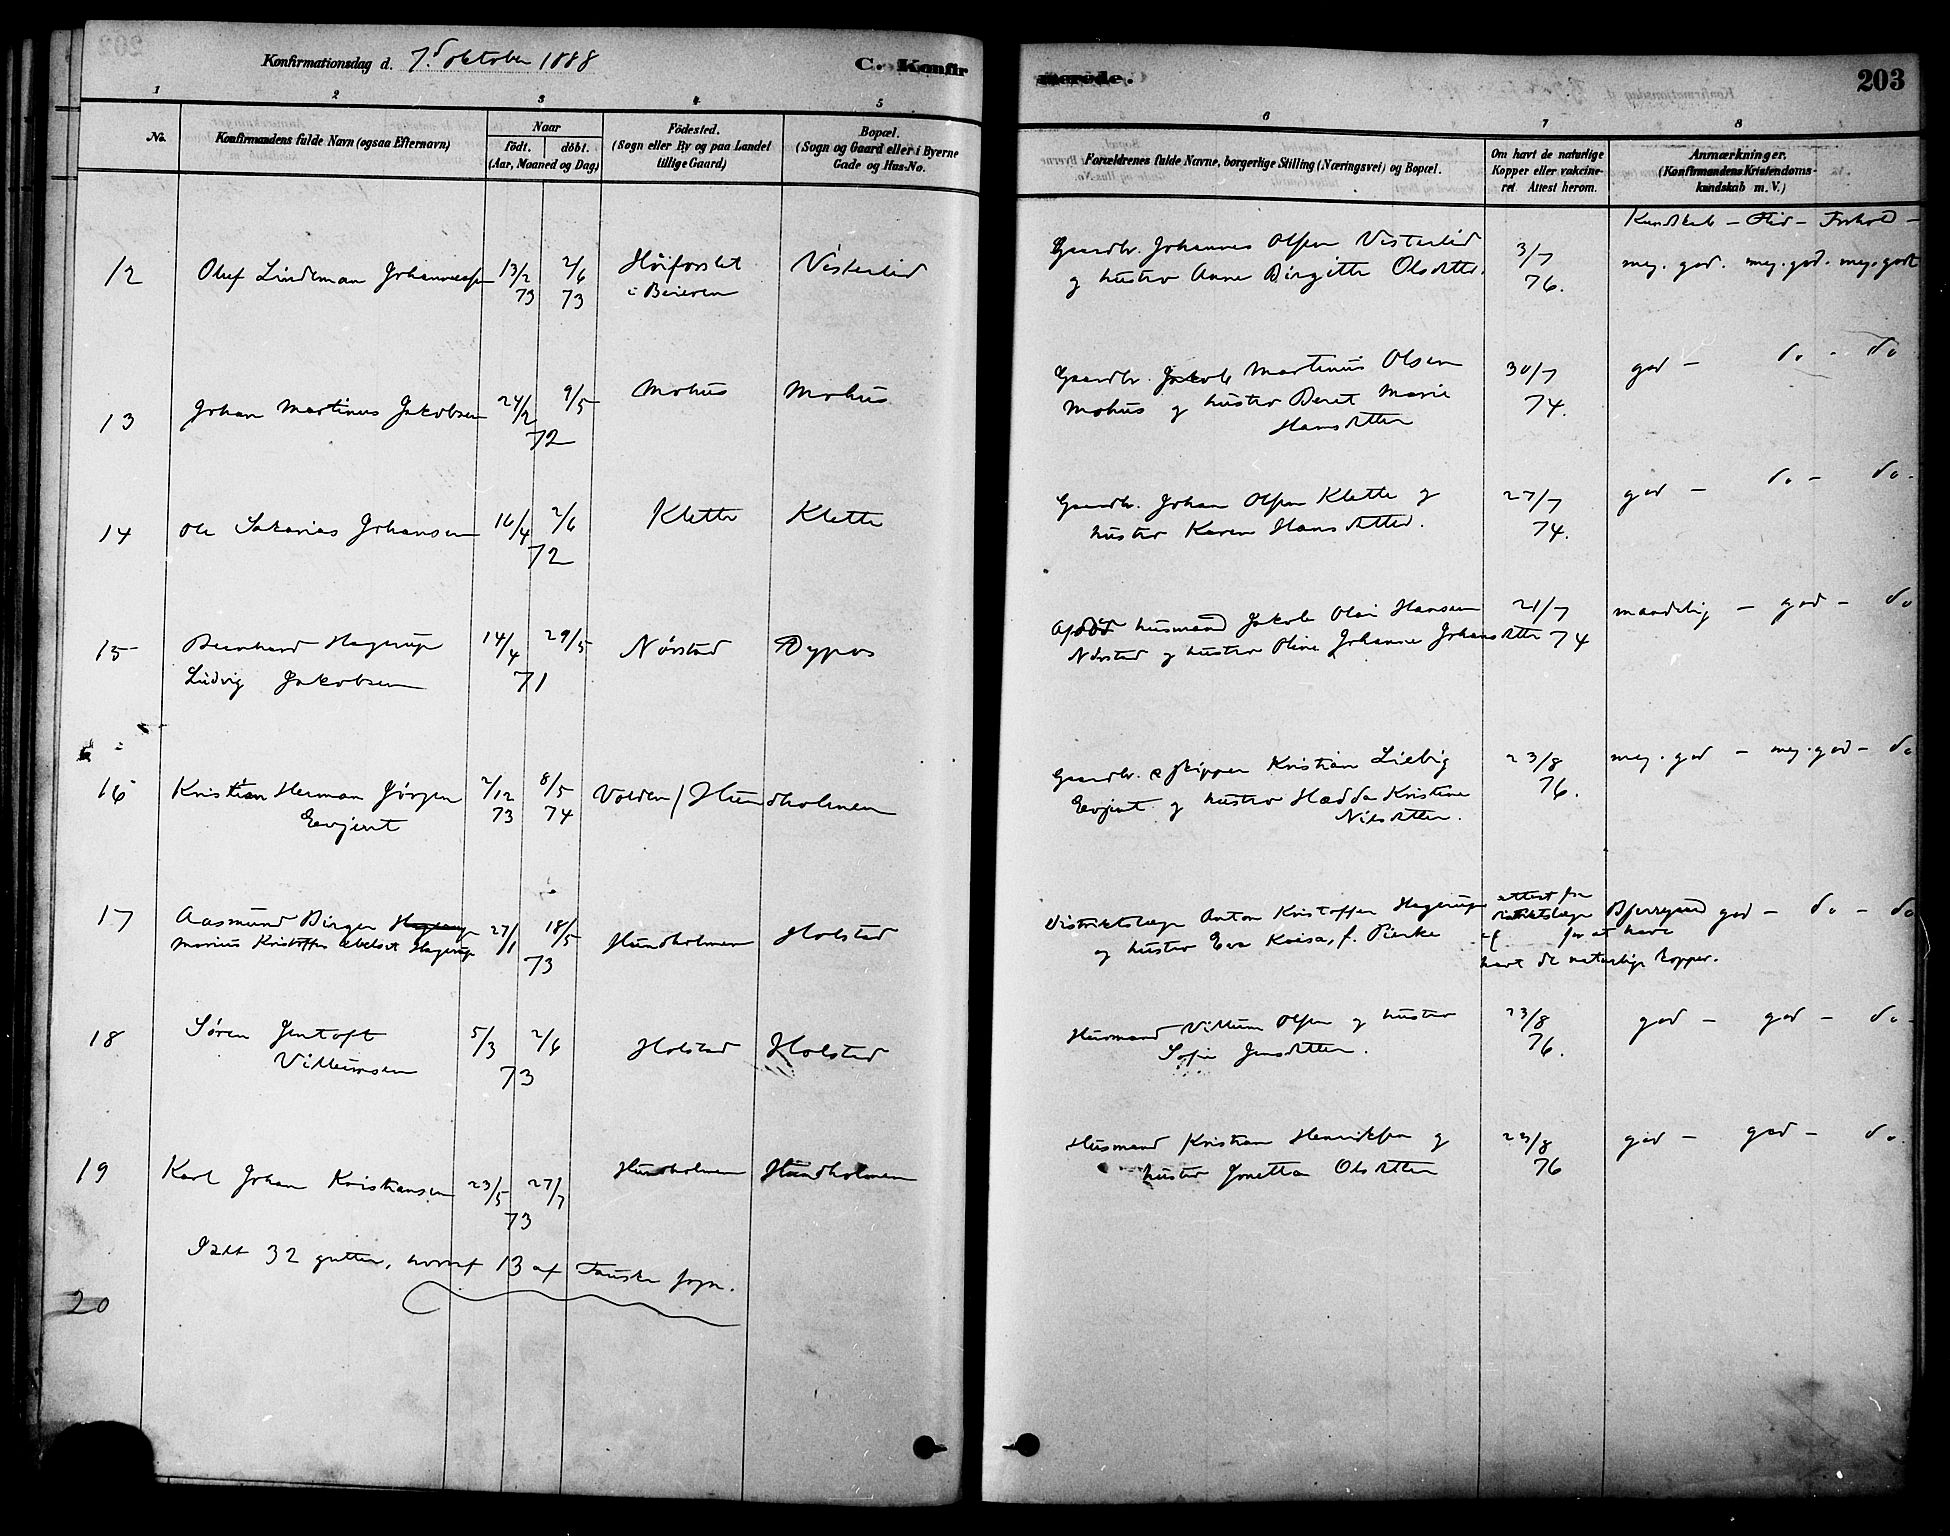 Konfirmationsdag d. 7d oktober 1888
C. Konfir
merede.
203
1 2 3 4 5
6 7 8
No.
Konfirmandens fulde Navn (ogsaa Efternavn)
Naar
født. døbt.
(Aar, Maaned og Dag)
Fødested.
(Sogn eller By og paa Landet
tillige Gaard)
Bopæl.
(Sogn og Gaard eller i Byerne
Gade og Hus-No.
Forældrenes fulde Navne, borgerlige Stilling (Næringsvei) og Bopæl.
Om havt de naturlige
Kopper eller vakcine-
ret. Attest herom.
Anmærkninger.
(Konfirmandens Kristendoms-
kundskab m. V.)
Kundskab - Flid - Forhold -
12 Oluf Lindeman Johannessen 13/2 73 2/6 73 Høiforslet Vesterlid
i Beieren
Gaardbr. Johannes Olsen Vesterlid 3/7 meg. god. meg. god. meg. godt
og hustro Anne Birgitte Olsdtter. 76.
13 Johan Martinus Jakobsen 24/2 9/5 Mohus Mohus
72
Gaardbr. Jakob Martinus Olsen 30/7 god - do - do
Mohus og hustro Beret Marie 74.
Hansdtter
14 Ole Sakarias Johansen 16/4 2/6 Klette Klette
72
Gaardbr. Johan Olsen Klette og 27/7 god - do - do.
hustro Karen Hansdtter. 74.
15 Bernhard Hagerup 14/4 29/5 Nørstad Dypos
Ludvig Jakobsen 71
Afdød husmand Jakob Olai Hansen 21/7 maadelig - god - do
Nørstad og hustro Oline Johanne Johansdtter 74
16 Kristian Herman Jørgen 2/12 8/5 Volden / Hundholmen
Eevjent 73 74
Gaardbr. & skipper Kristian Liebig 23/8 meg. god - meg. god - do
Eevjent og hustro Hedda Kristine 76.
Nilsdtter.
17 Aasmund Birger Hagerup 27/1 18/5 Hundholmen Holstad
Marius Kristoffer Hagerup 73
Distriktslæge Anton Kristoffer Hagerup attest fra
og hustro Eva Kaisa, f. distriktslæge Bjerregaard god - do - do
for at have
havt de naturlige kopper.
18 Søren Jentoft 5/3 2/6 Holstad Holstad
Villumsen 73
Husmand Villum Olsen og hustro 23/8 god - god - do -
Sofie Jensdtter. 76.
19 Karl Johan Kristiansen 23/5 27/7 Hundholmen Hundholmen
73
Husmand Kristian Henriksen og 23/8 god - god - do.
hustro Jonetta Olsdtter 76
Idt 32 gutter, hvoraf 13 af Fauske sogn.
20